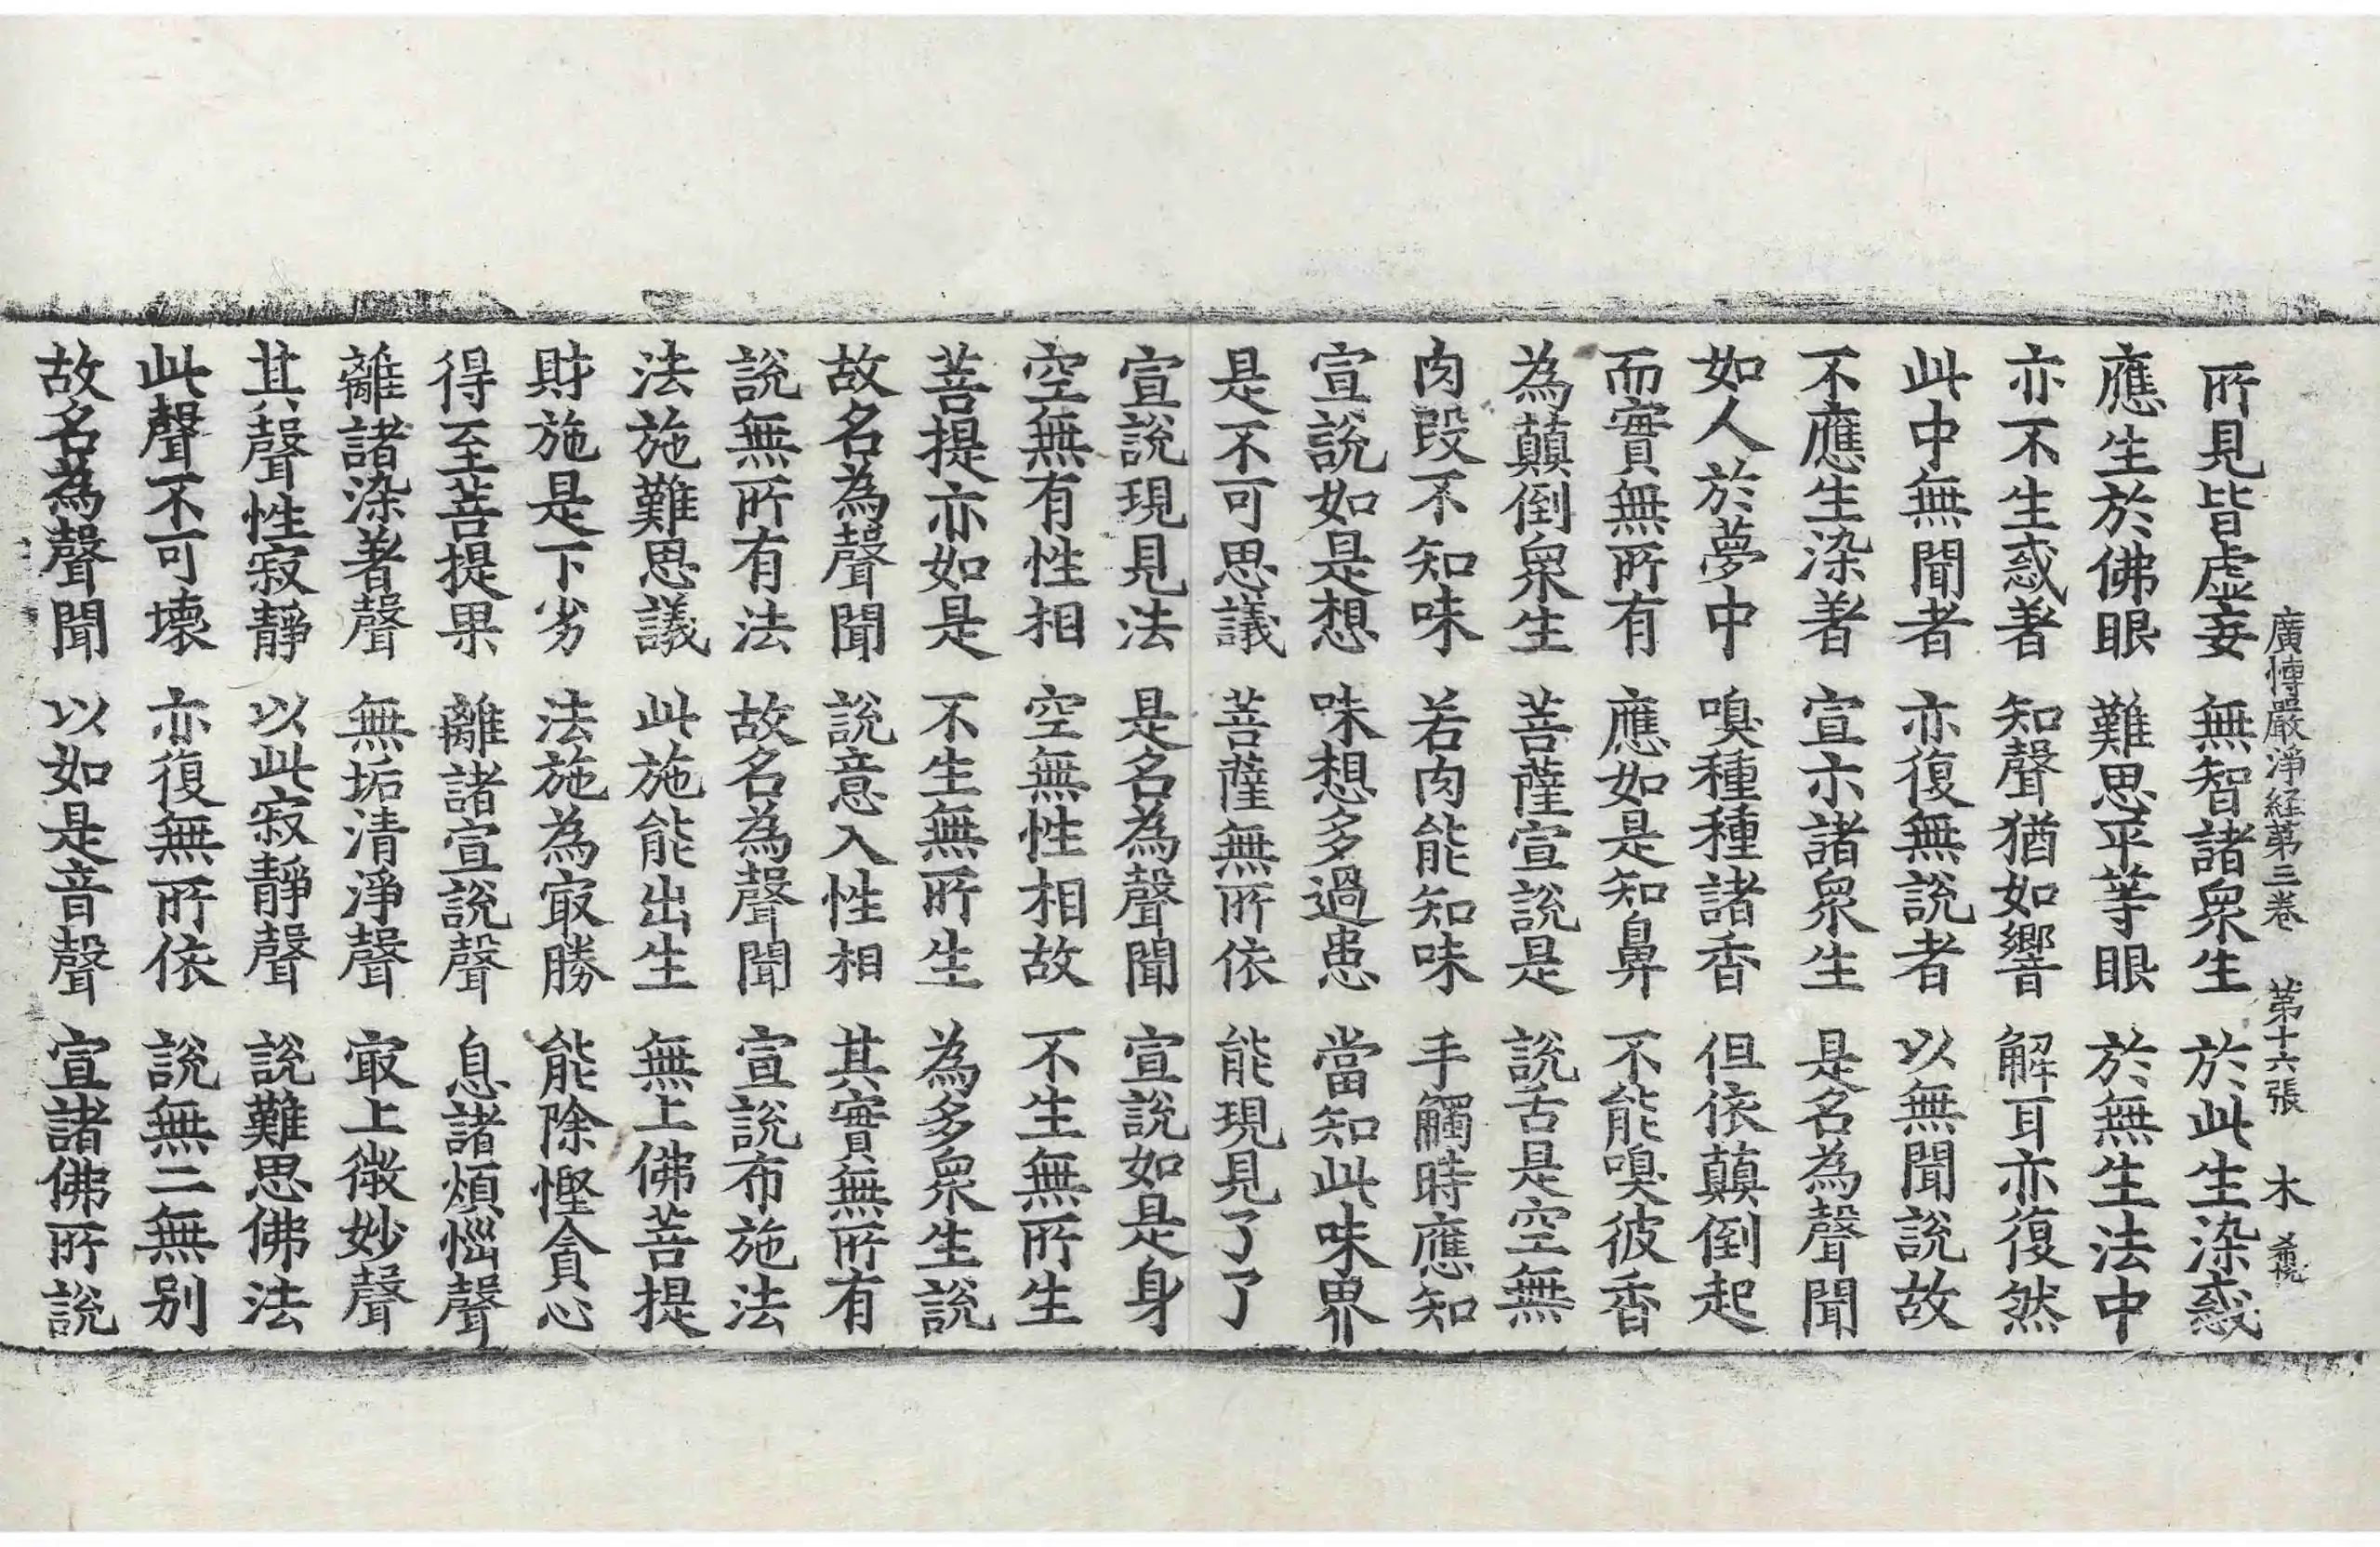 廣愽嚴淨経第三卷　第十六張　木　希悅
所見皆虛妄　無智諸衆生　於此生染惑
應生於佛眼　難思平等眼　於無生法中
亦不生惑著　知聲猶如響　解耳亦復然
此中無聞者　亦復無說者　以無聞說故
不應生染著　宣示諸衆生　是名為聲聞
如人於夢中　嗅種種諸香　但依顛倒起
而實無所有　應如是知鼻　不能嗅彼香
為顛倒衆生　菩薩宣說是　說舌是空無
肉段不知味　若肉能知味　手觸時應知
宣說如是想　味想多過患　當知此味界
是不可思議　菩薩無所依　能現見了了
宣說現見法　是名為聲聞　宣說如是身
空無有性相　空無性相故　不生無所生
菩提亦如是　不生無所生　為多衆生說
故名為聲聞　說意入性相　其實無所有
說無所有法　故名為聲聞　宣說布施法
法施難思議　此施能出生　無上佛菩提
財施是下劣　法施為㝡勝　能除慳貪心
得至菩提果　離諸宣說聲　息諸煩惱聲
離諸染著聲　無垢清淨聲　㝡上微妙聲
其聲性寂靜　以此寂靜聲　說難思佛法
此聲不可壞　亦復無所依　說無二無別
故名為聲聞　以如是音聲　宣諸佛所說